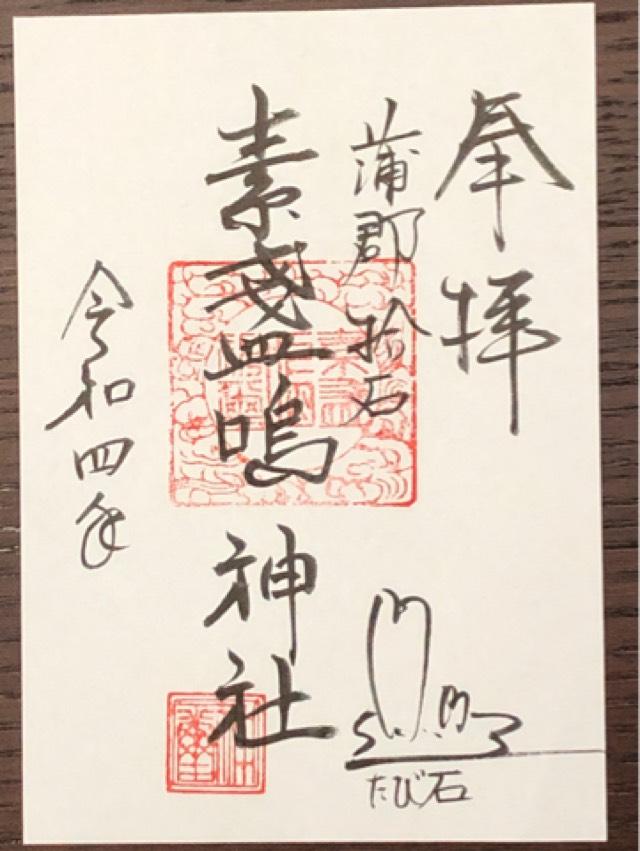 奉拝
蒲郡拾石
素盞嗚神社
令和四年
たび石